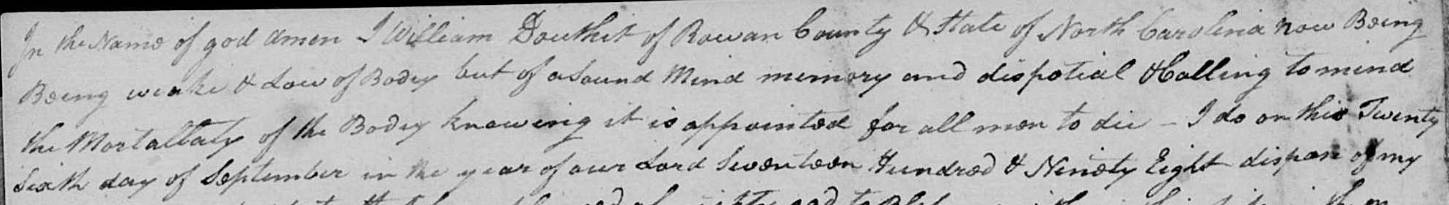 In the Name of god amen I William Douthit of Rowan County & State of North Carolina now Being
Being weake & Low of Bodey but of a Sound Mind memory and dispotial & Calling to mind
the Mortallaty of the Bodey knowing it is appointed for all men to die - I do on this Twenty
Sixth day of September in the year of our Lord Seventeen Hundred & Ninety Eight dispose of my